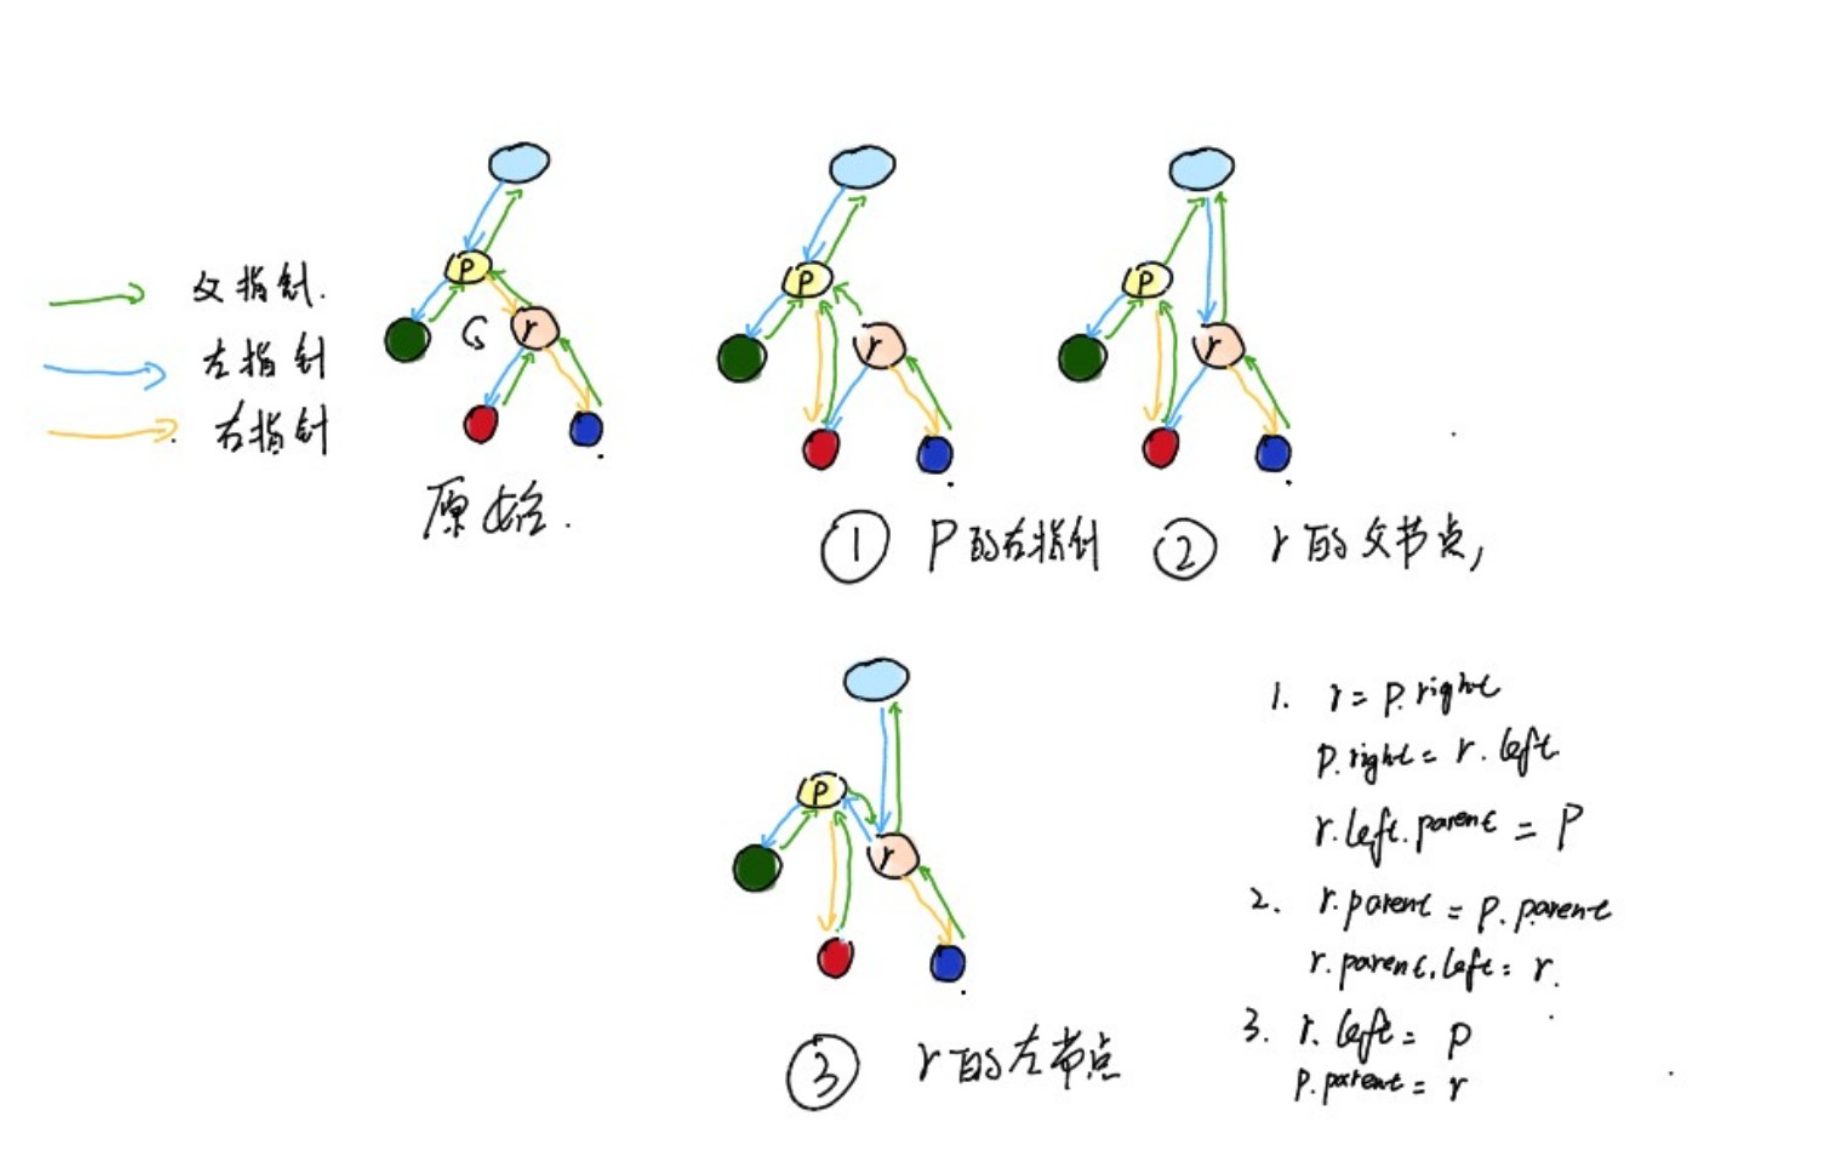 父指针.
左指针
右指针
P
r
原始.
P
r
① P的右指针
P
r
② r的父节点,
P
r
③ r的左节点
1. r = p.right
p.right = r.left
r.left.parent = P
2. r.parent = p.parent
r.parent.left = r.
3. r.left = p
p.parent = r